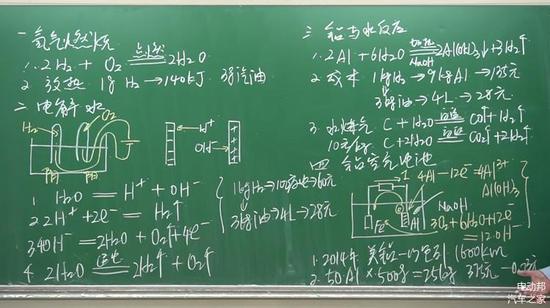 一 氢气燃烧
1. 2H₂ + O₂ 点燃 2H₂O
2 放热 1g H₂→140kJ 3g汽油
二 电解水
H₂ O₂
H⁺
OH⁻
1 H₂O = H⁺ + OH⁻
2 2H⁺ + 2e⁻ = H₂↑
3 4OH⁻ = 2H₂O + O₂↑ + 4e⁻
4. 2H₂O 通电 2H₂↑ + O₂↑
3kg油→4L→28元
三 铝与水反应
1. 2Al + 6H₂O NaOH 2Al(OH)₃↓ + 3H₂↑
2. 成本 1kgH₂→9kgAl→135元
3kg油→4L→28元
3. 水煤气 C + H₂O 高温 CO↑ + H₂↑
10元/kg C + 2H₂O 高温 CO₂↑ + 2H₂↑
四 铝空气电池
4Al - 12e⁻ = 4Al³⁺
Al(OH)₃
NaOH
Al
3O₂ + 6H₂O + 12e⁻
= 12OH⁻
1. 2014年 美铝 1600km
2. 50Al × 500g = 25kg 375元
电动邦
汽车之家